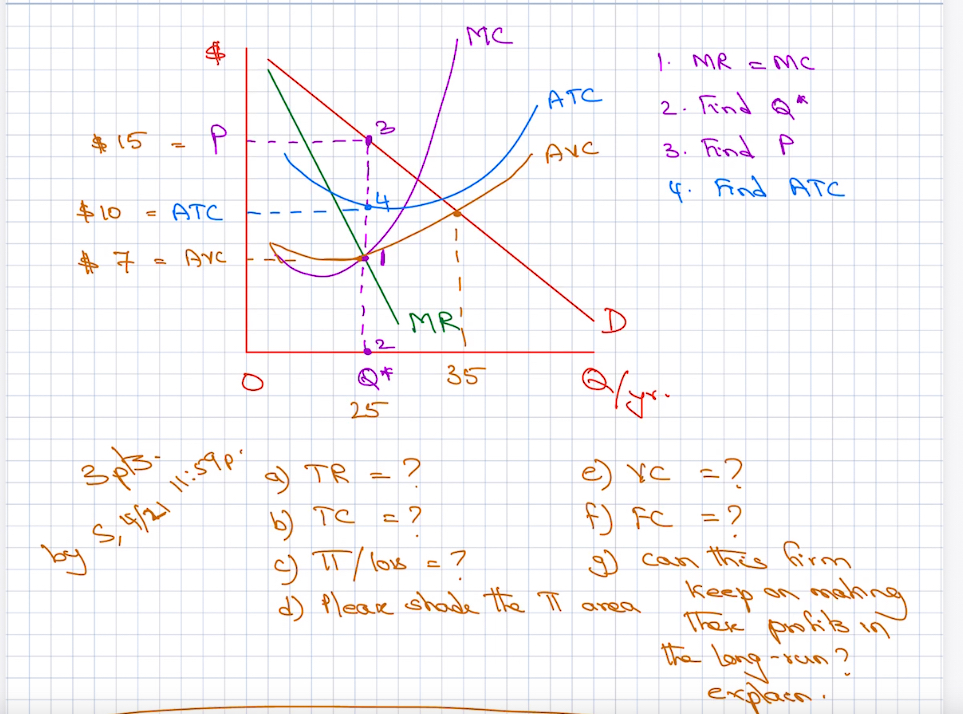 $
MC
ATC
AVC
$15 = P
$10 = ATC
$ 7 = AVC
3
4
1
2
MR
D
O
Q*
25
35
Q/yr.
1. MR = MC
2. Find Q*
3. Find P
4. Find ATC
3pts.
by S, 4/21 11:59p.
a) TR = ?
b) TC = ?
c) π/loss = ?
d) Please shade the π area
e) VC = ?
f) FC = ?
g) can this firm
keep on making
these profits in
the long-run?
explain.